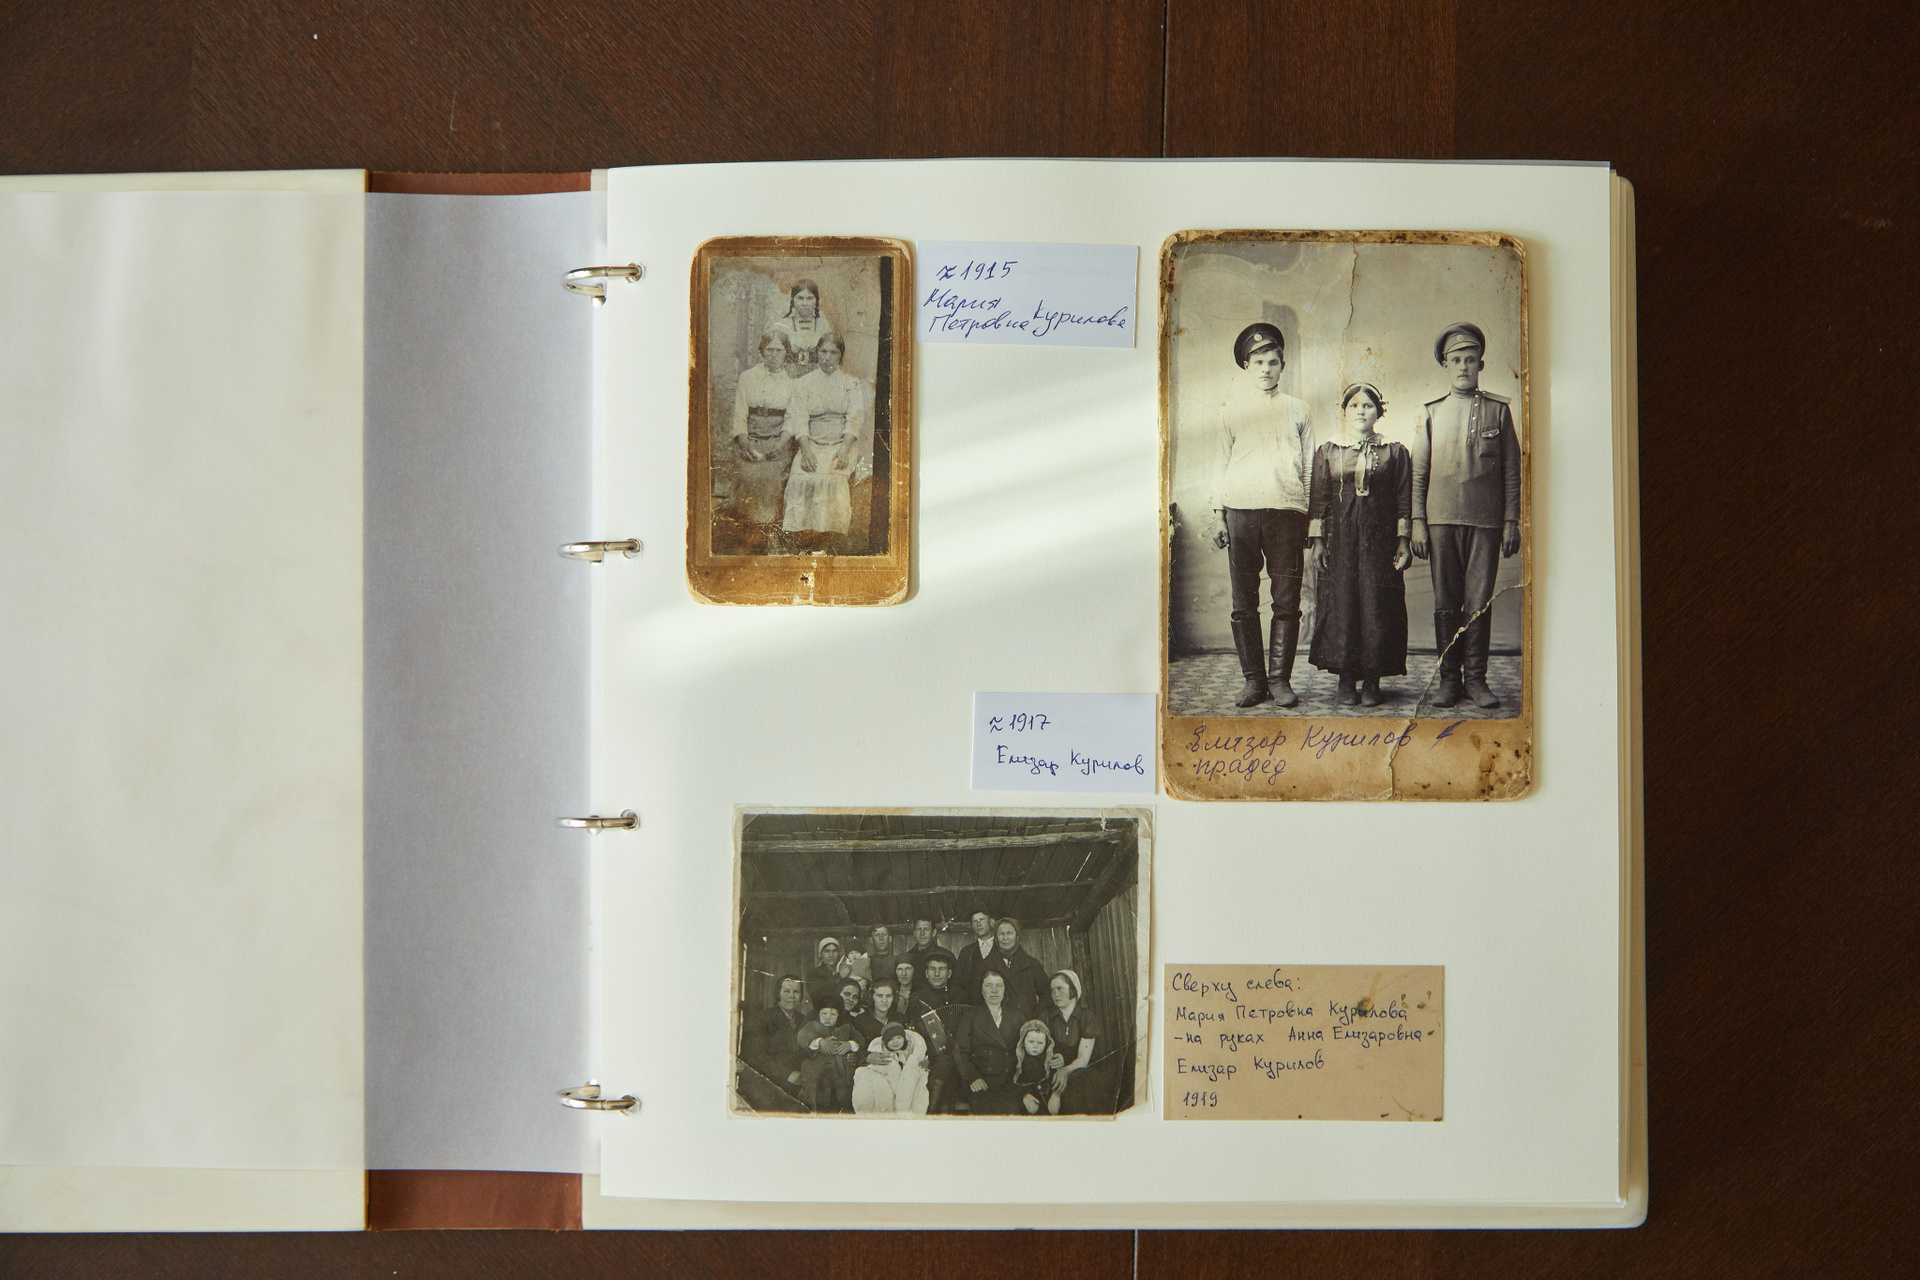 ≈ 1915
Мария
Петровна Курилова
≈ 1917
Елизар Курилов
Елизар Курилов
прадед
Сверху слева:
Мария Петровна Курилова
-на руках Анна Елизаровна
Елизар Курилов
1919